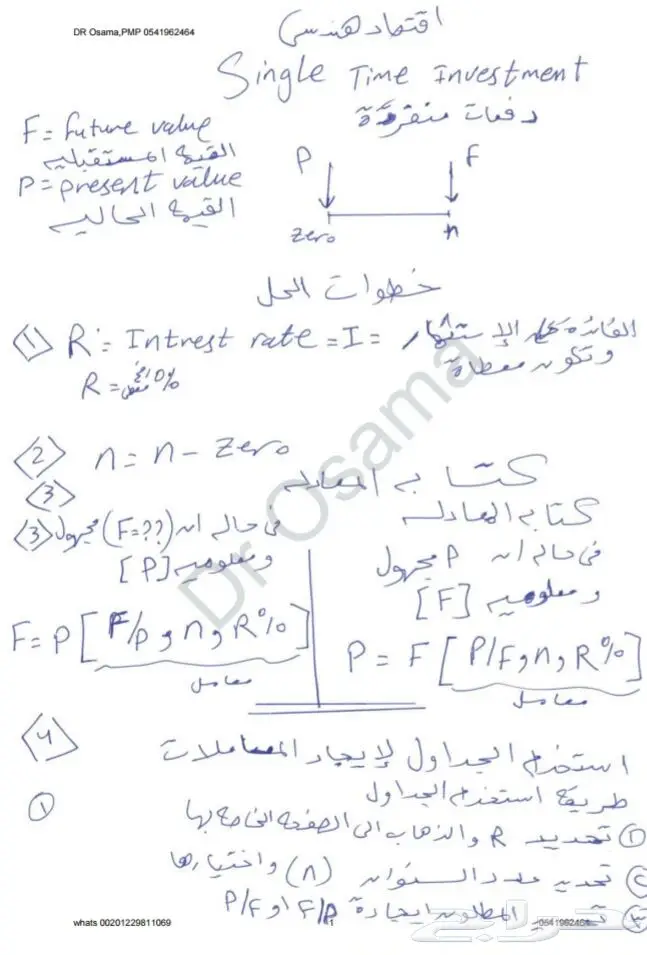 DR Osama,PMP 0541962464
اقتصاد هندسى
Single Time Investment
دفعات منفردة
F = future value
القيمة المستقبليه
P = present value
القيمة الحاليه
P F
zero n
خطوات الحل
<1> R = Intrest rate = I = الفائدة على الإستثمار
وتكون معطاة
R = 10%
<2> n = n - zero
<3> كتابه المعادله
<3> فى حاله ان (F=??) مجهول
ومعلوميه [P]
F = P [F/P و n و R%]
معامل
كتابه المعادله
فى حاله ان P مجهول
ومعلوميه [F]
P = F [P/F و n و R%]
معامل
<4> استخدام الجداول لإيجاد المعاملات
① طريقة استخدام الجداول
① تحديد R والذهاب الى الصفحه الخاصه بها
② تحديد عدد السنوات (n) واختيارها
③ تحديد المطلوب ايجادة F/P او P/F
Dr Osama
whats 00201229811069
1
0541962464
حراج